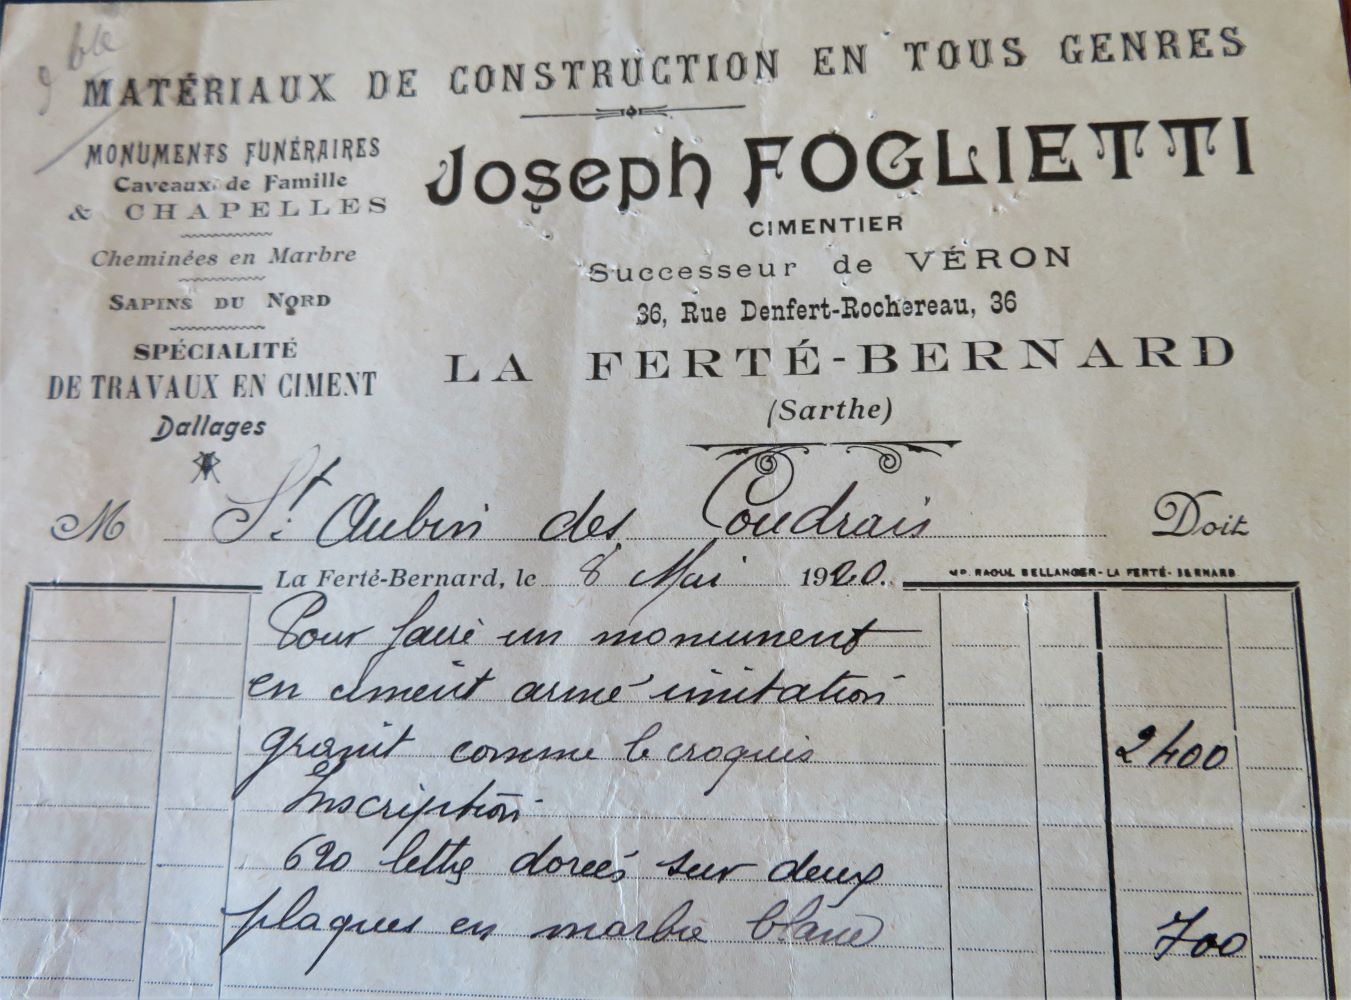 ble
MATÉRIAUX DE CONSTRUCTION EN TOUS GENRES
MONUMENTS FUNÉRAIRES
Caveaux de Famille
& CHAPELLES
Cheminées en Marbre
SAPINS DU NORD
SPÉCIALITÉ
DE TRAVAUX EN CIMENT
Dallages
Joseph FOGLIETTI
CIMENTIER
Successeur de VÉRON
36, Rue Denfert-Rochereau, 36
LA FERTÉ-BERNARD
(Sarthe)
M St Aubin des Coudrais Doit
La Ferté-Bernard, le 8 Mai 1920.
IMP. RAOUL BELLANGER - LA FERTÉ-BERNARD
Pour faire un monument
en ciment armé imitation
granit comme le croquis 2400
Inscription
620 lettres dorées sur deux
plaques en marbre blanc 700